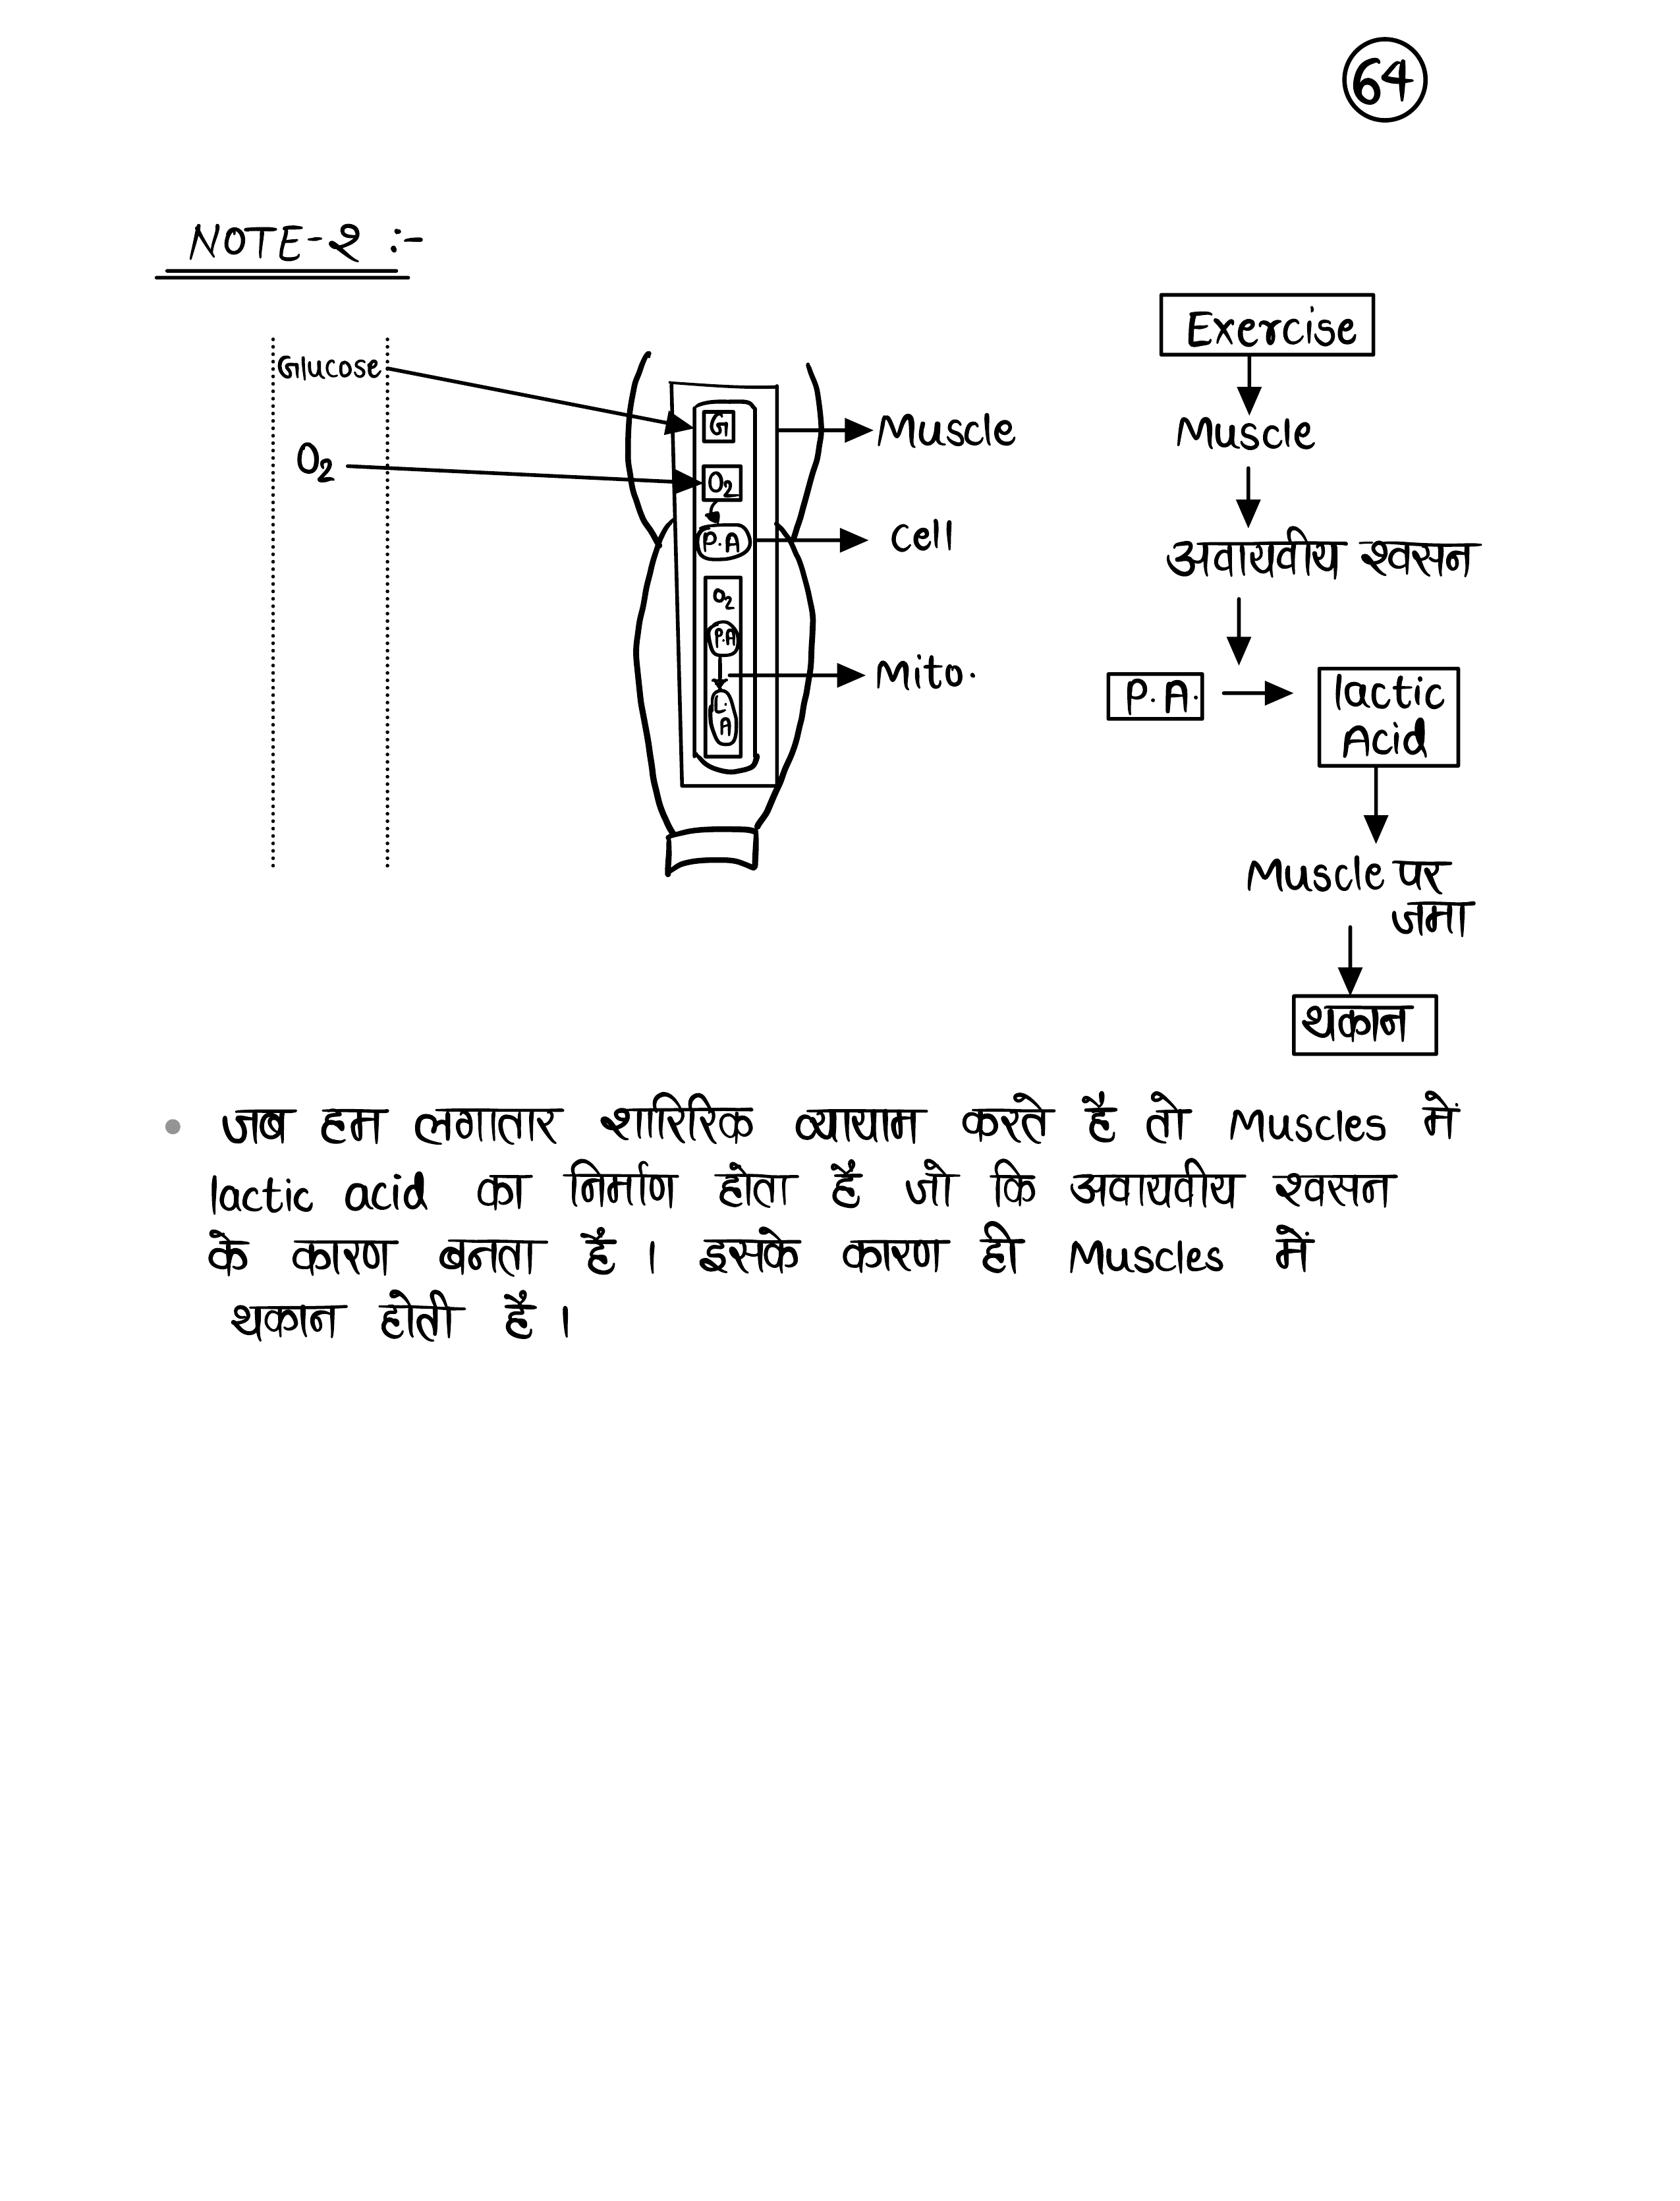 64
NOTE-२ :-
Glucose
O2
G
O2
P.A
O2
P.A
L.
A
Muscle
Cell
Mito.
Exercise
Muscle
अवायवीय श्वसन
P.A.
lactic
Acid
Muscle पर
जमा
थकान
• जब हम लगातार शारिरिक व्यायाम करते है तो Muscles में
lactic acid का निर्माण होता है जो कि अवायवीय श्वसन
के कारण बनता है । इसके कारण ही Muscles में
थकान होती है ।